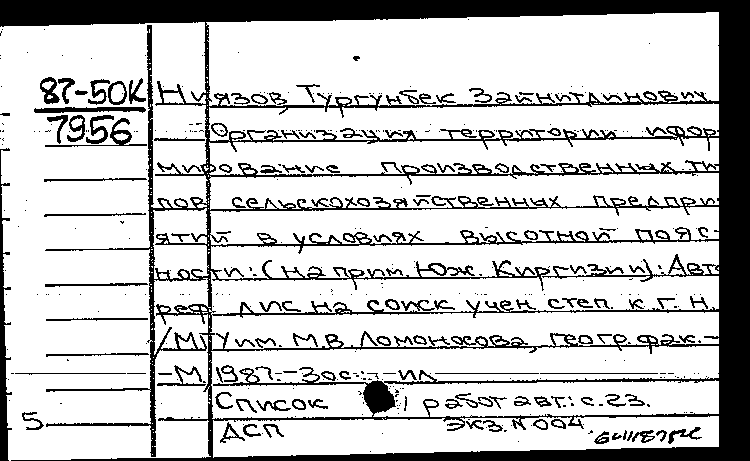 87-50К Ниязов, Тургунбек Зайнитдинович
7956 Организация территории и фор-
мирование производственных ти-
пов сельскохозяйственных предпри-
ятий в условиях высотной пояс-
ности: (на прим. Юж. Киргизии): Авто
реф. дис. на соиск. учен. степ. к. г. н.
/МГУ им. М.В. Ломоносова, геогр. фак.-
-М., 1987.- 30 с. ил
Список работ авт.: с. 23.
5 ДСП Экз. N 004